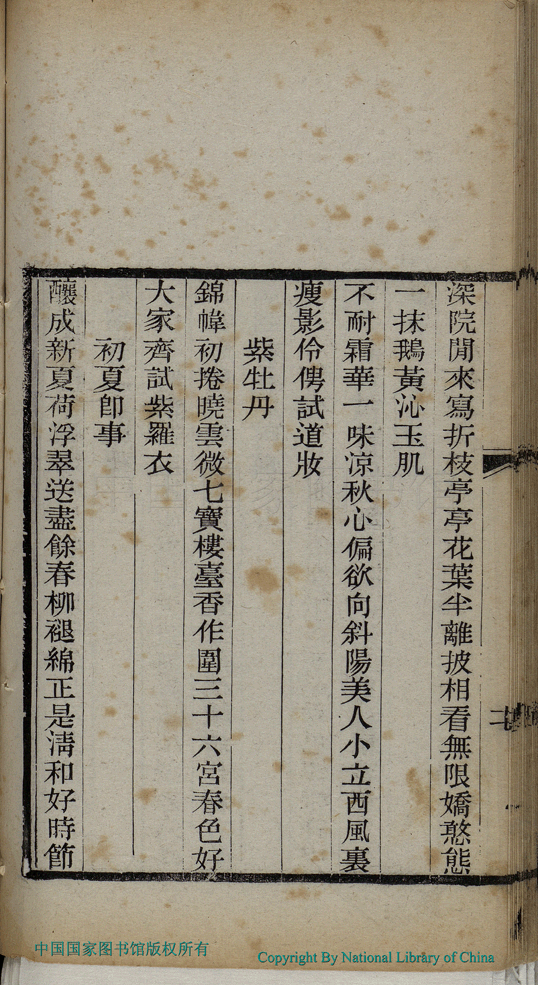 深院閒來寫折枝亭亭花葉半離披相看無限嬌憨態
一抹鵝黃沁玉肌
不耐霜華一味凉秋心偏欲向斜陽美人小立西風裏
瘦影伶俜試道妝
紫牡丹
錦幃初捲曉雲微七寶樓臺香作圍三十六宮春色好
大家齊試紫羅衣
初夏卽事
釀成新夏荷浮翠送盡餘春柳褪綿正是淸和好時節
中国国家图书馆版权所有
Copyright By National Library of China